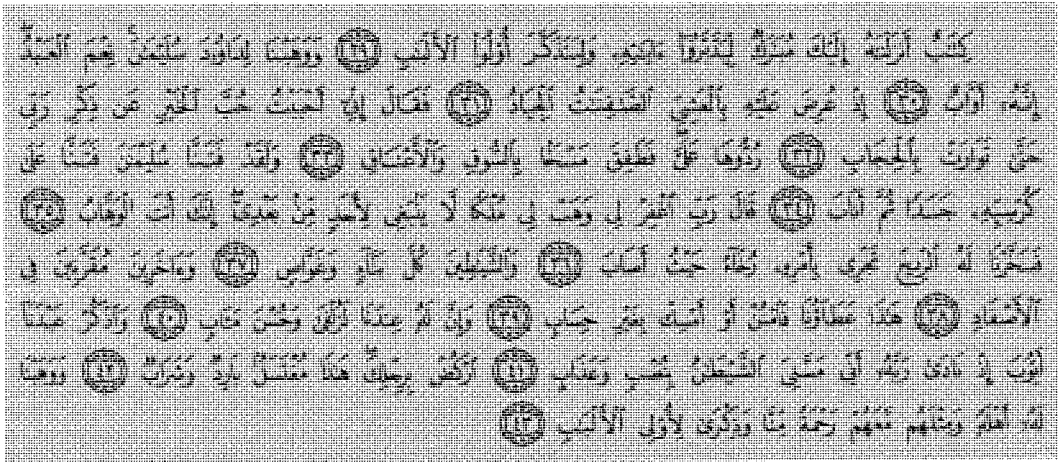 كِتَٰبٌ أَنزَلْنَٰهُ إِلَيْكَ مُبَٰرَكٌ لِّيَدَّبَّرُوٓا۟ ءَايَٰتِهِۦ وَلِيَتَذَكَّرَ أُو۟لُوا۟ ٱلْأَلْبَٰبِ ٢٩ وَوَهَبْنَا لِدَاوُۥدَ سُلَيْمَٰنَ نِعْمَ ٱلْعَبْدُ
إِنَّهُۥٓ أَوَّابٌ ٣٠ إِذْ عُرِضَ عَلَيْهِ بِٱلْعَشِىِّ ٱلصَّٰفِنَٰتُ ٱلْجِيَادُ ٣١ فَقَالَ إِنِّىٓ أَحْبَبْتُ حُبَّ ٱلْخَيْرِ عَن ذِكْرِ رَبِّى
حَتَّىٰ تَوَارَتْ بِٱلْحِجَابِ ٣٢ رُدُّوهَا عَلَىَّ فَطَفِقَ مَسْحًۢا بِٱلسُّوقِ وَٱلْأَعْنَاقِ ٣٣ وَلَقَدْ فَتَنَّا سُلَيْمَٰنَ عَلَىٰ
كُرْسِيِّهِۦ جَسَدًا ثُمَّ أَنَابَ ٣٤ قَالَ رَبِّ ٱغْفِرْ لِى وَهَبْ لِى مُلْكًا لَّا يَنۢبَغِى لِأَحَدٍ مِّنۢ بَعْدِىٓ إِنَّكَ أَنتَ ٱلْوَهَّابُ ٣٥
فَسَخَّرْنَا لَهُ ٱلرِّيحَ تَجْرِى بِأَمْرِهِۦ رُخَآءً حَيْثُ أَصَابَ ٣٦ وَٱلشَّيَٰطِينَ كُلَّ بَنَّآءٍ وَغَوَّاصٍ ٣٧ وَءَاخَرِينَ مُقَرَّنِينَ فِى
ٱلْأَصْفَادِ ٣٨ هَٰذَا عَطَآؤُنَا فَٱمْنُنْ أَوْ أَمْسِكْ بِغَيْرِ حِسَابٍ ٣٩ وَإِنَّ لَهُۥ عِندَنَا لَزُلْفَىٰ وَحُسْنَ مَـَٔابٍ ٤٠ وَٱذْكُرْ عَبْدَنَآ
أَيُّوبَ إِذْ نَادَىٰ رَبَّهُۥٓ أَنِّى مَسَّنِىَ ٱلشَّيْطَٰنُ بِنُصْبٍ وَعَذَابٍ ٤١ ٱرْكُضْ بِرِجْلِكَ هَٰذَا مُغْتَسَلٌۢ بَارِدٌ وَشَرَابٌ ٤٢ وَوَهَبْنَا
لَهُۥٓ أَهْلَهُۥ وَمِثْلَهُم مَّعَهُمْ رَحْمَةً مِّنَّا وَذِكْرَىٰ لِأُو۟لِى ٱلْأَلْبَٰبِ ٤٣